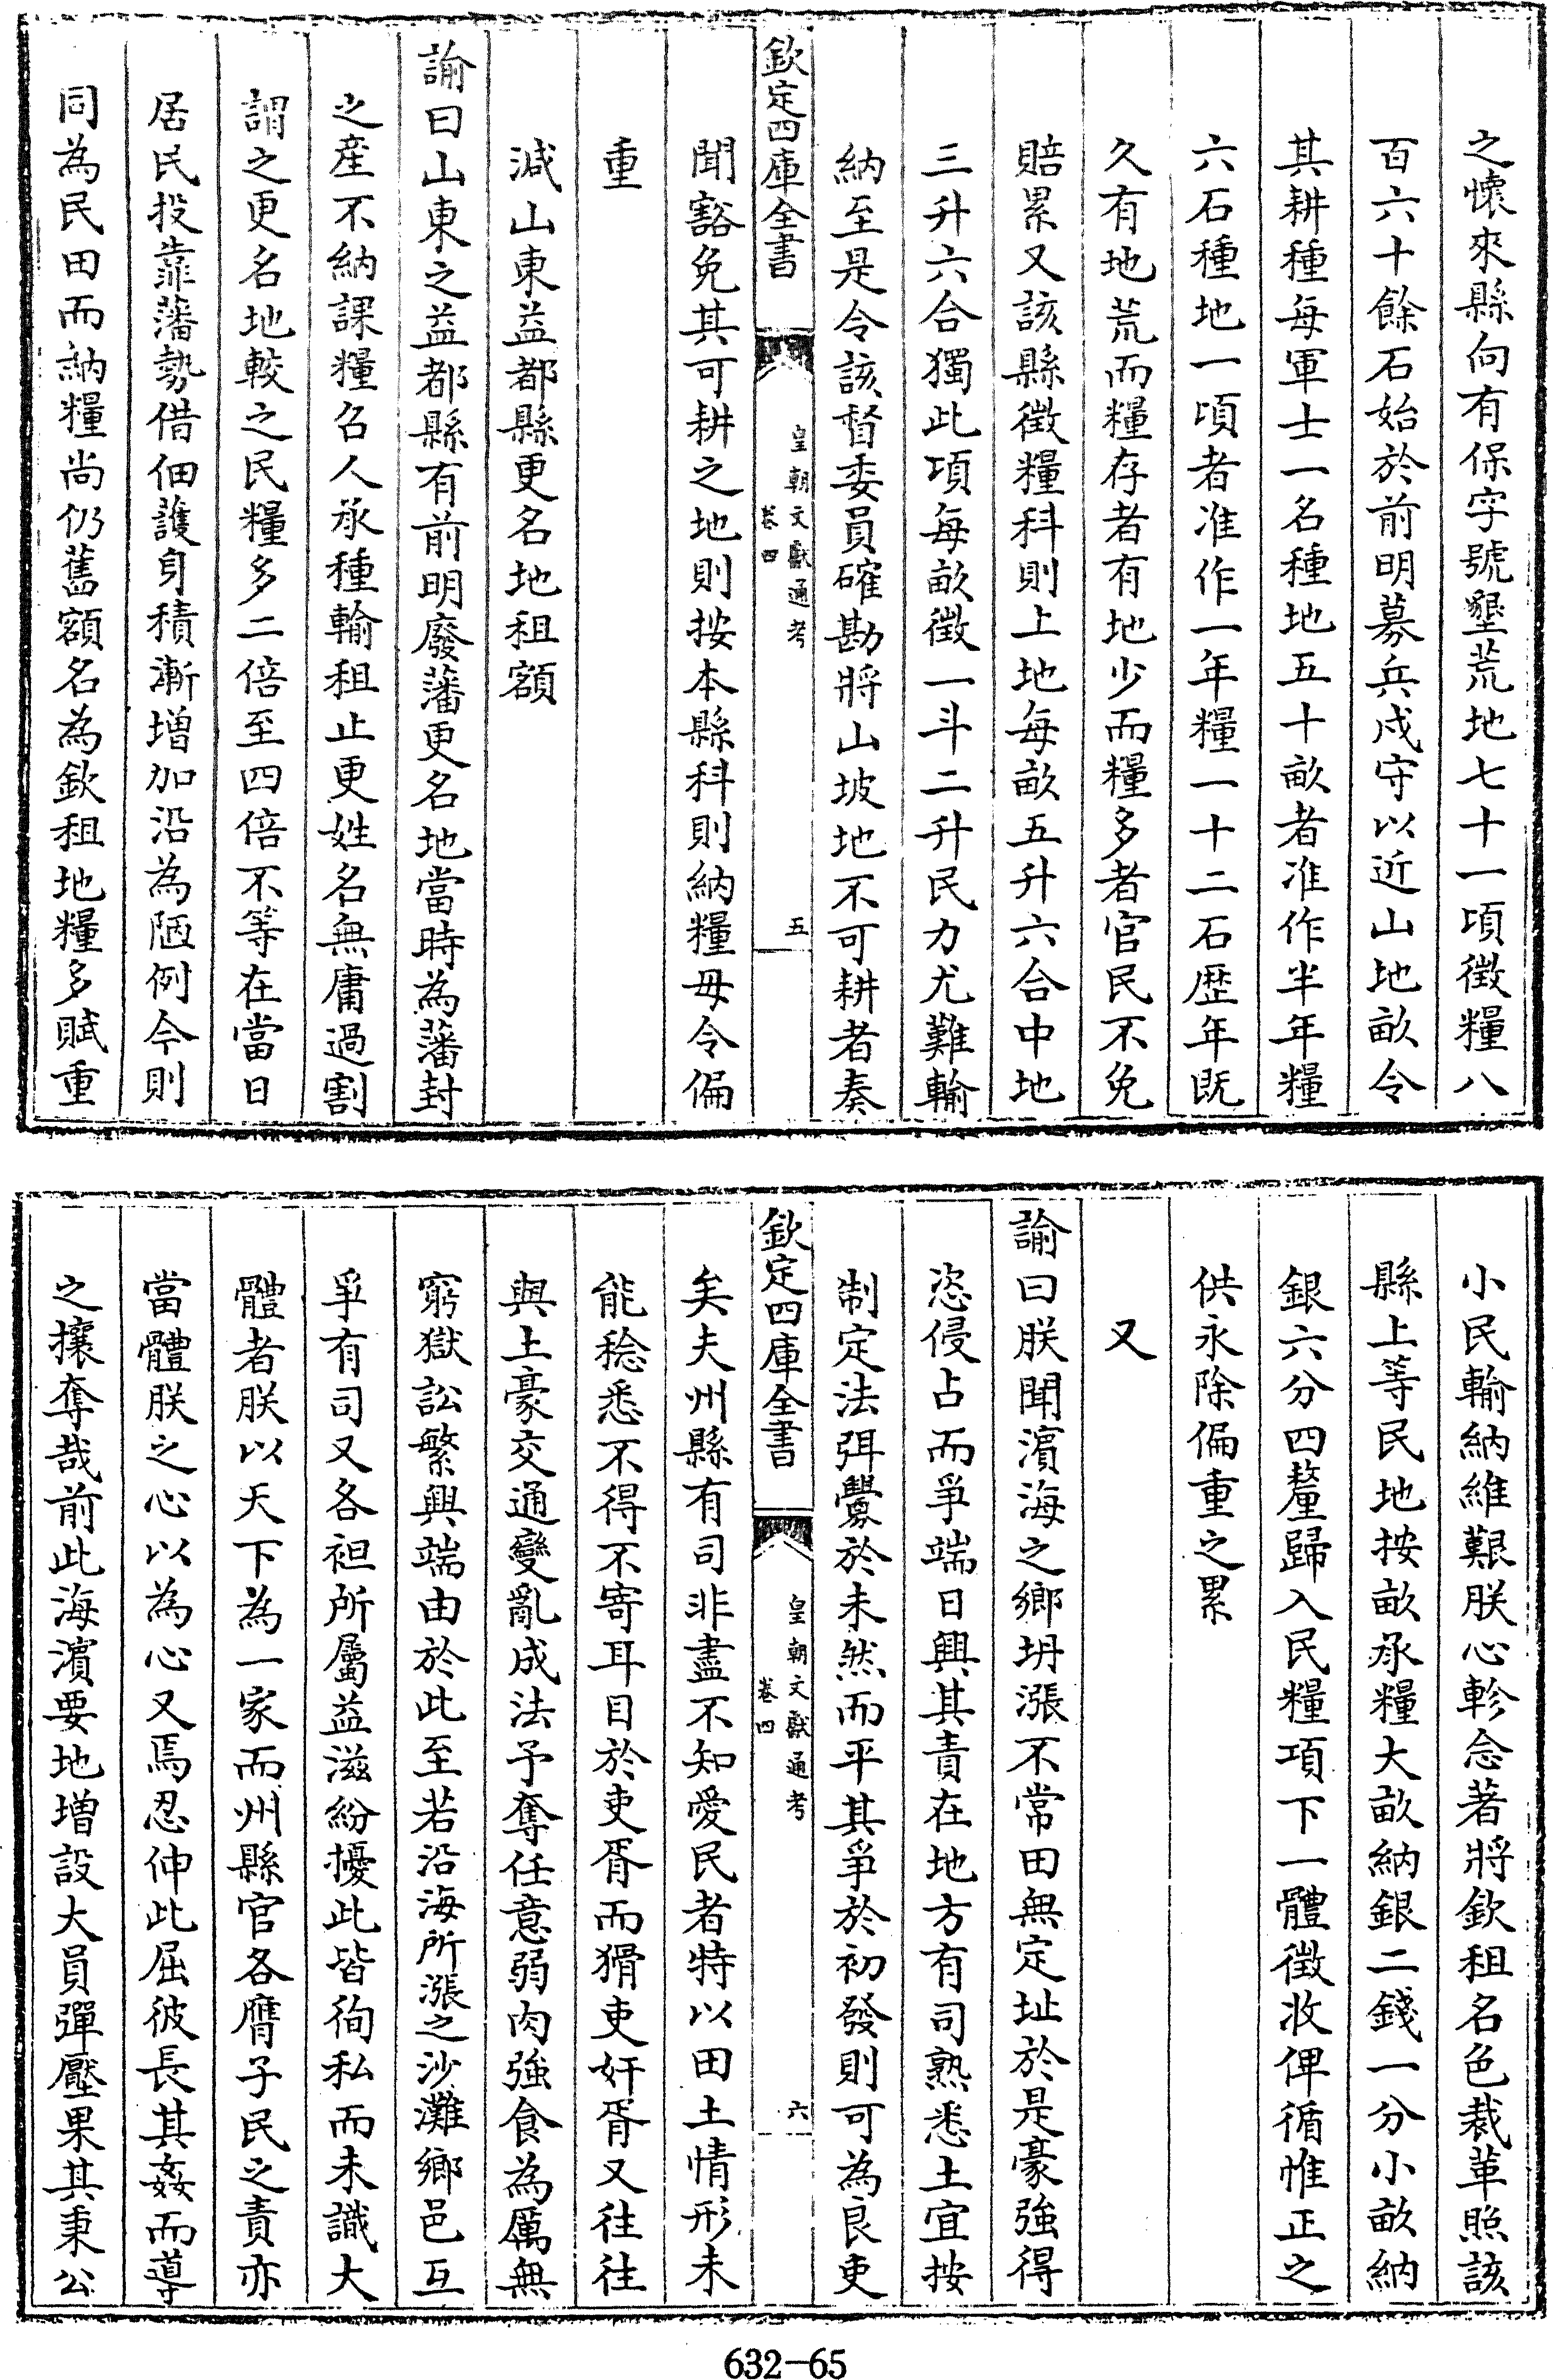 之懷來縣向有保字號墾荒地七十一項徵糧八
百六十餘石始於前明募兵戍守以近山地畝令
其耕種每軍士一名種地五十畝者准作半年糧
六石種地一頃者准作一年糧一十二石歷年既
久有地荒而糧存者有地少而糧多者官民不免
賠累又該縣徵糧科則上地每畝五升六合中地
三升六合獨此項每畝徵一斗二升民力尤難輸
納至是令該督委員確勘將山坡地不可耕者奏
欽定四庫全書
皇朝文獻通考
卷四
五
聞豁免其可耕之地則按本縣科則納糧毋令偏
重
減山東益都縣更名地租額
諭曰山東之益都縣有前明廢藩更名地當時為藩封
之產不納課糧召人承種輸租止更姓名無庸過割
謂之更名地較之民糧多二倍至四倍不等在當日
居民投靠藩勢借佃護身積漸增加沿為陋例今則
同為民田而納糧尚仍舊額名為欽租地糧多賦重
小民輸納維艱朕心軫念著將欽租名色裁革照該
縣上等民地按畝承糧大畝納銀二錢一分小畝納
銀六分四釐歸入民糧項下一體徵收俾循惟正之
供永除偏重之累
又
諭曰朕聞濱海之鄉坍漲不常田無定址於是豪強得
恣侵占而爭端日興其責在地方有司熟悉土宜按
制定法弭釁於未然而平其爭於初發則可為良吏
欽定四庫全書
皇朝文獻通考
卷四
六
矣夫州縣有司非盡不知愛民者特以田土情形未
能稔悉不得不寄耳目於吏胥而猾吏奸胥又往往
與土豪交通變亂成法予奪任意弱肉強食為厲無
窮獄訟繁興端由於此至若沿海所漲之沙灘鄉邑互
爭有司又各袒所屬益滋紛擾此皆徇私而未識大
體者朕以天下為一家而州縣官各膺子民之責亦
當體朕之心以為心又焉忍伸此屈彼長其姦而導
之攘奪哉前此海濱要地增設大員彈壓果其秉公
632-65